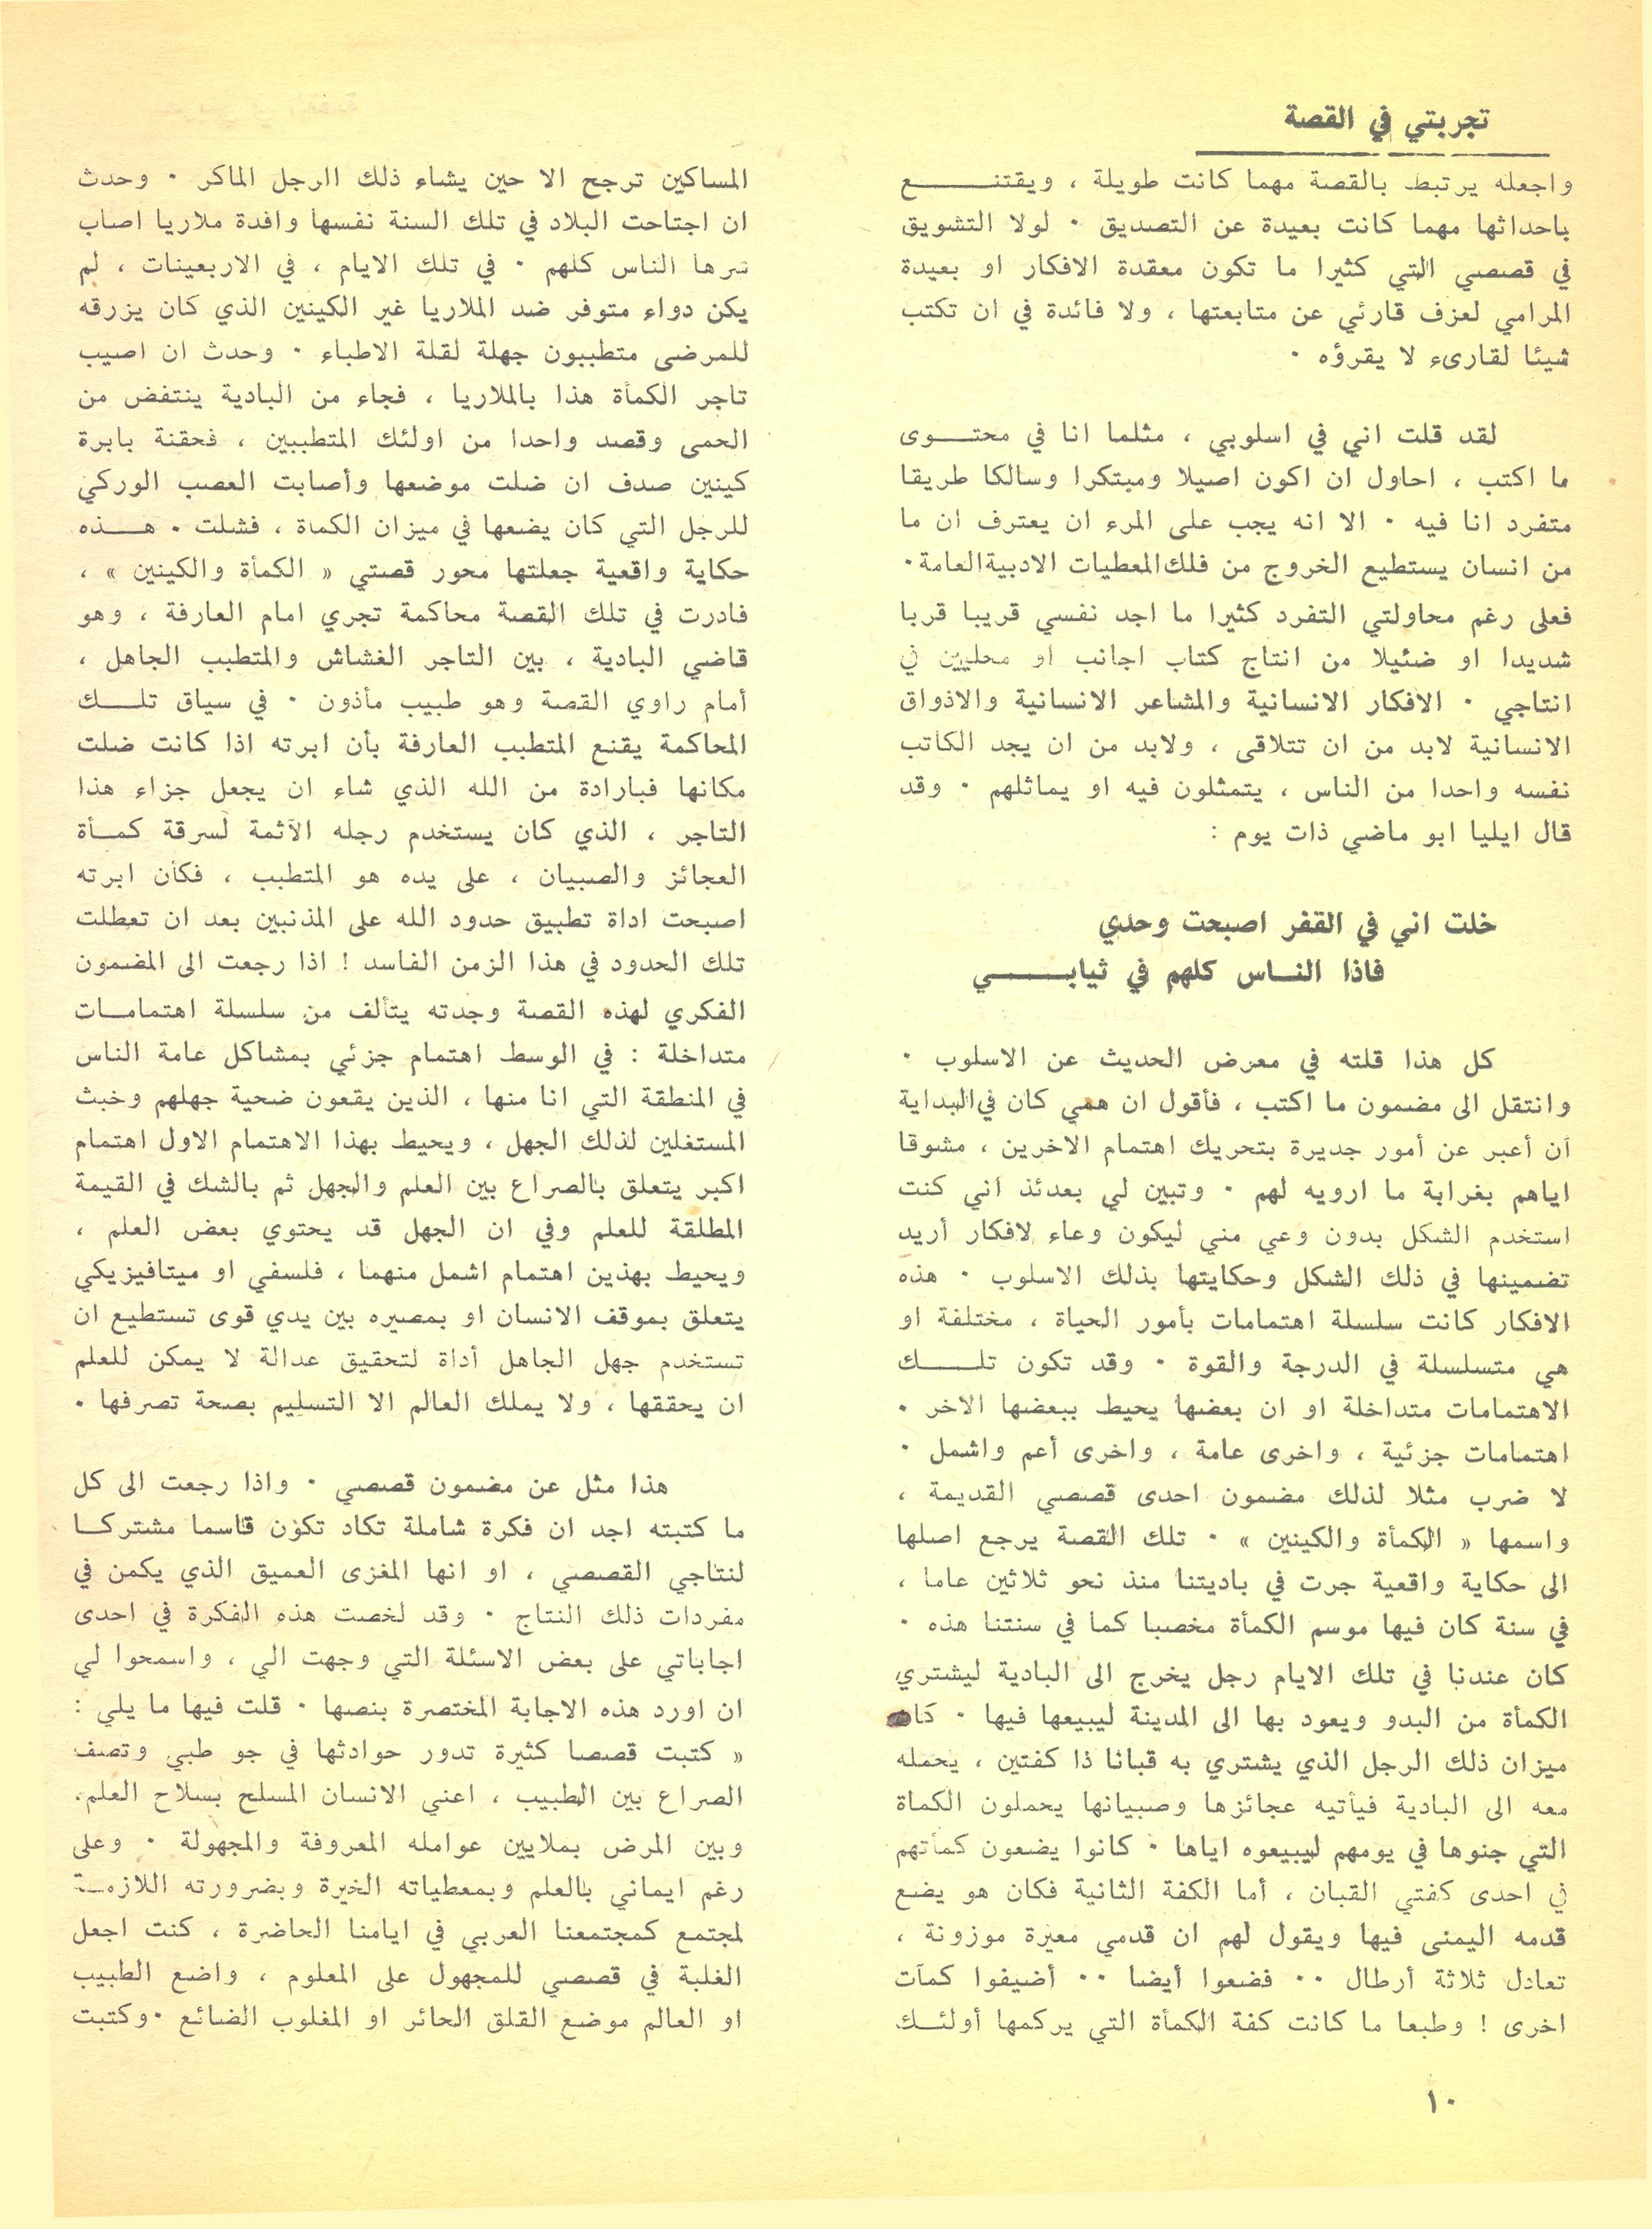 تجربتي في القصة
واجعله يرتبط بالقصة مهما كانت طويلة ، ويقتنع
باحداثها مهما كانت بعيدة عن التصديق · لولا التشويق
في قصصي التي كثيرا ما تكون معقدة الافكار او بعيدة
المرامي لعزف قارئي عن متابعتها ، ولا فائدة في ان تكتب
شيئا لقارىء لا يقرؤه ·
لقد قلت اني في اسلوبي ، مثلما انا في محتوى
ما اكتب ، احاول ان اكون اصيلا ومبتكرا وسالكا طريقا
متفرد انا فيه · الا انه يجب على المرء ان يعترف ان ما
من انسان يستطيع الخروج من فلك المعطيات الادبية العامة·
فعلى رغم محاولتي التفرد كثيرا ما اجد نفسي قريبا قربا
شديدا او ضئيلا من انتاج كتاب اجانب او محليين في
انتاجي · الافكار الانسانية والمشاعر الانسانية والاذواق
الانسانية لابد من ان تتلاقى ، ولابد من ان يجد الكاتب
نفسه واحدا من الناس ، يتمثلون فيه او يماثلهم · وقد
قال ايليا ابو ماضي ذات يوم :
خلت اني في القفر اصبحت وحدي
فاذا الناس كلهم في ثيابي
كل هذا قلته في معرض الحديث عن الاسلوب ·
وانتقل الى مضمون ما اكتب ، فأقول ان همي كان في البداية
أن أعبر عن أمور جديرة بتحريك اهتمام الاخرين ، مشوقا
اياهم بغرابة ما ارويه لهم · وتبين لي بعدئذ أني كنت
استخدم الشكل بدون وعي مني ليكون وعاء لافكار أريد
تضمينها في ذلك الشكل وحكايتها بذلك الاسلوب · هذه
الافكار كانت سلسلة اهتمامات بأمور الحياة ، مختلفة او
هي متسلسلة في الدرجة والقوة · وقد تكون تلك
الاهتمامات متداخلة او ان بعضها يحيط ببعضها الاخر ·
اهتمامات جزئية ، واخرى عامة ، واخرى أعم واشمل ·
لا ضرب مثلا لذلك مضمون احدى قصصي القديمة ،
واسمها « الكمأة والكينين » · تلك القصة يرجع اصلها
الى حكاية واقعية جرت في باديتنا منذ نحو ثلاثين عاما ،
في سنة كان فيها موسم الكمأة مخصبا كما في سنتنا هذه ·
كان عندنا في تلك الايام رجل يخرج الى البادية ليشتري
الكمأة من البدو ويعود بها الى المدينة ليبيعها فيها ·
ميزان ذلك الرجل الذي يشتري به قبانا ذا كفتين ، يحمله
معه الى البادية فيأتيه عجائزها وصبيانها يحملون الكماة
التي جنوها في يومهم ليبيعوه اياها · كانوا يضعون كمأتهم
في احدى كفتي القبان ، أما الكفة الثانية فكان هو يضع
قدمه اليمنى فيها ويقول لهم ان قدمي معيرة موزونة ،
تعادل ثلاثة أرطال ·· فضعوا أيضا ·· أضيفوا كمآت
اخرى ! وطبعا ما كانت كفة الكمأة التي يركمها أولئك
المساكين ترجح الا حين يشاء ذلك الرجل الماكر · وحدث
ان اجتاحت البلاد في تلك السنة نفسها وافدة ملاريا اصاب
شرها الناس كلهم · في تلك الايام ، في الاربعينات ، لم
يكن دواء متوفر ضد الملاريا غير الكينين الذي كان يزرقه
للمرضى متطببون جهلة لقلة الاطباء · وحدث ان اصيب
تاجر الكمأة هذا بالملاريا ، فجاء من البادية ينتفض من
الحمى وقصد واحدا من اولئك المتطببين ، فحقنة بابرة
كينين صدف ان ضلت موضعها وأصابت العصب الوركي
للرجل التي كان يضعها في ميزان الكماة ، فشلت · هذه
حكاية واقعية جعلتها محور قصتي « الكمأة والكينين » ،
فادرت في تلك القصة محاكمة تجري امام العارفة ، وهو
قاضي البادية ، بين التاجر الغشاش والمتطبب الجاهل ،
أمام راوي القصة وهو طبيب مأذون · في سياق تلك
المحاكمة يقنع المتطبب العارفة بأن ابرته اذا كانت ضلت
مكانها فبارادة من الله الذي شاء ان يجعل جزاء هذا
التاجر ، الذي كان يستخدم رجله الآثمة لسرقة كمأة
العجائز والصبيان ، على يده هو المتطبب ، فكأن ابرته
اصبحت اداة تطبيق حدود الله على المذنبين بعد ان تعطلت
تلك الحدود في هذا الزمن الفاسد ! اذا رجعت الى المضمون
الفكري لهذه القصة وجدته يتألف من سلسلة اهتمامات
متداخلة : في الوسط اهتمام جزئي بمشاكل عامة الناس
في المنطقة التي انا منها ، الذين يقعون ضحية جهلهم وخبث
المستغلين لذلك الجهل ، ويحيط بهذا الاهتمام الاول اهتمام
اكبر يتعلق بالصراع بين العلم والجهل ثم بالشك في القيمة
المطلقة للعلم وفي ان الجهل قد يحتوي بعض العلم ،
ويحيط بهذين اهتمام اشمل منهما ، فلسفي او ميتافيزيكي
يتعلق بموقف الانسان او بمصيره بين يدي قوى تستطيع ان
تستخدم جهل الجاهل أداة لتحقيق عدالة لا يمكن للعلم
ان يحققها ، ولا يملك العالم الا التسليم بصحة تصرفها ·
هذا مثل عن مضمون قصصي · واذا رجعت الى كل
ما كتبته اجد ان فكرة شاملة تكاد تكون قاسما مشتركا
لنتاجي القصصي ، او انها المغزى العميق الذي يكمن في
مفردات ذلك النتاج · وقد لخصت هذه الفكرة في احدى
اجاباتي على بعض الاسئلة التي وجهت الي ، واسمحوا لي
ان اورد هذه الاجابة المختصرة بنصها · قلت فيها ما يلي :
« كتبت قصصا كثيرة تدور حوادثها في جو طبي وتصف
الصراع بين الطبيب ، اعني الانسان المسلح بسلاح العلم·
وبين المرض بملايين عوامله المعروفة والمجهولة · وعلى
رغم ايماني بالعلم وبمعطياته الخيرة وبضرورته اللازمة
لمجتمع كمجتمعنا العربي في ايامنا الحاضرة ، كنت اجعل
الغلبة في قصصي للمجهول على المعلوم ، واضع الطبيب
او العالم موضع القلق الحائر او المغلوب الضائع ·وكتبت
١٠